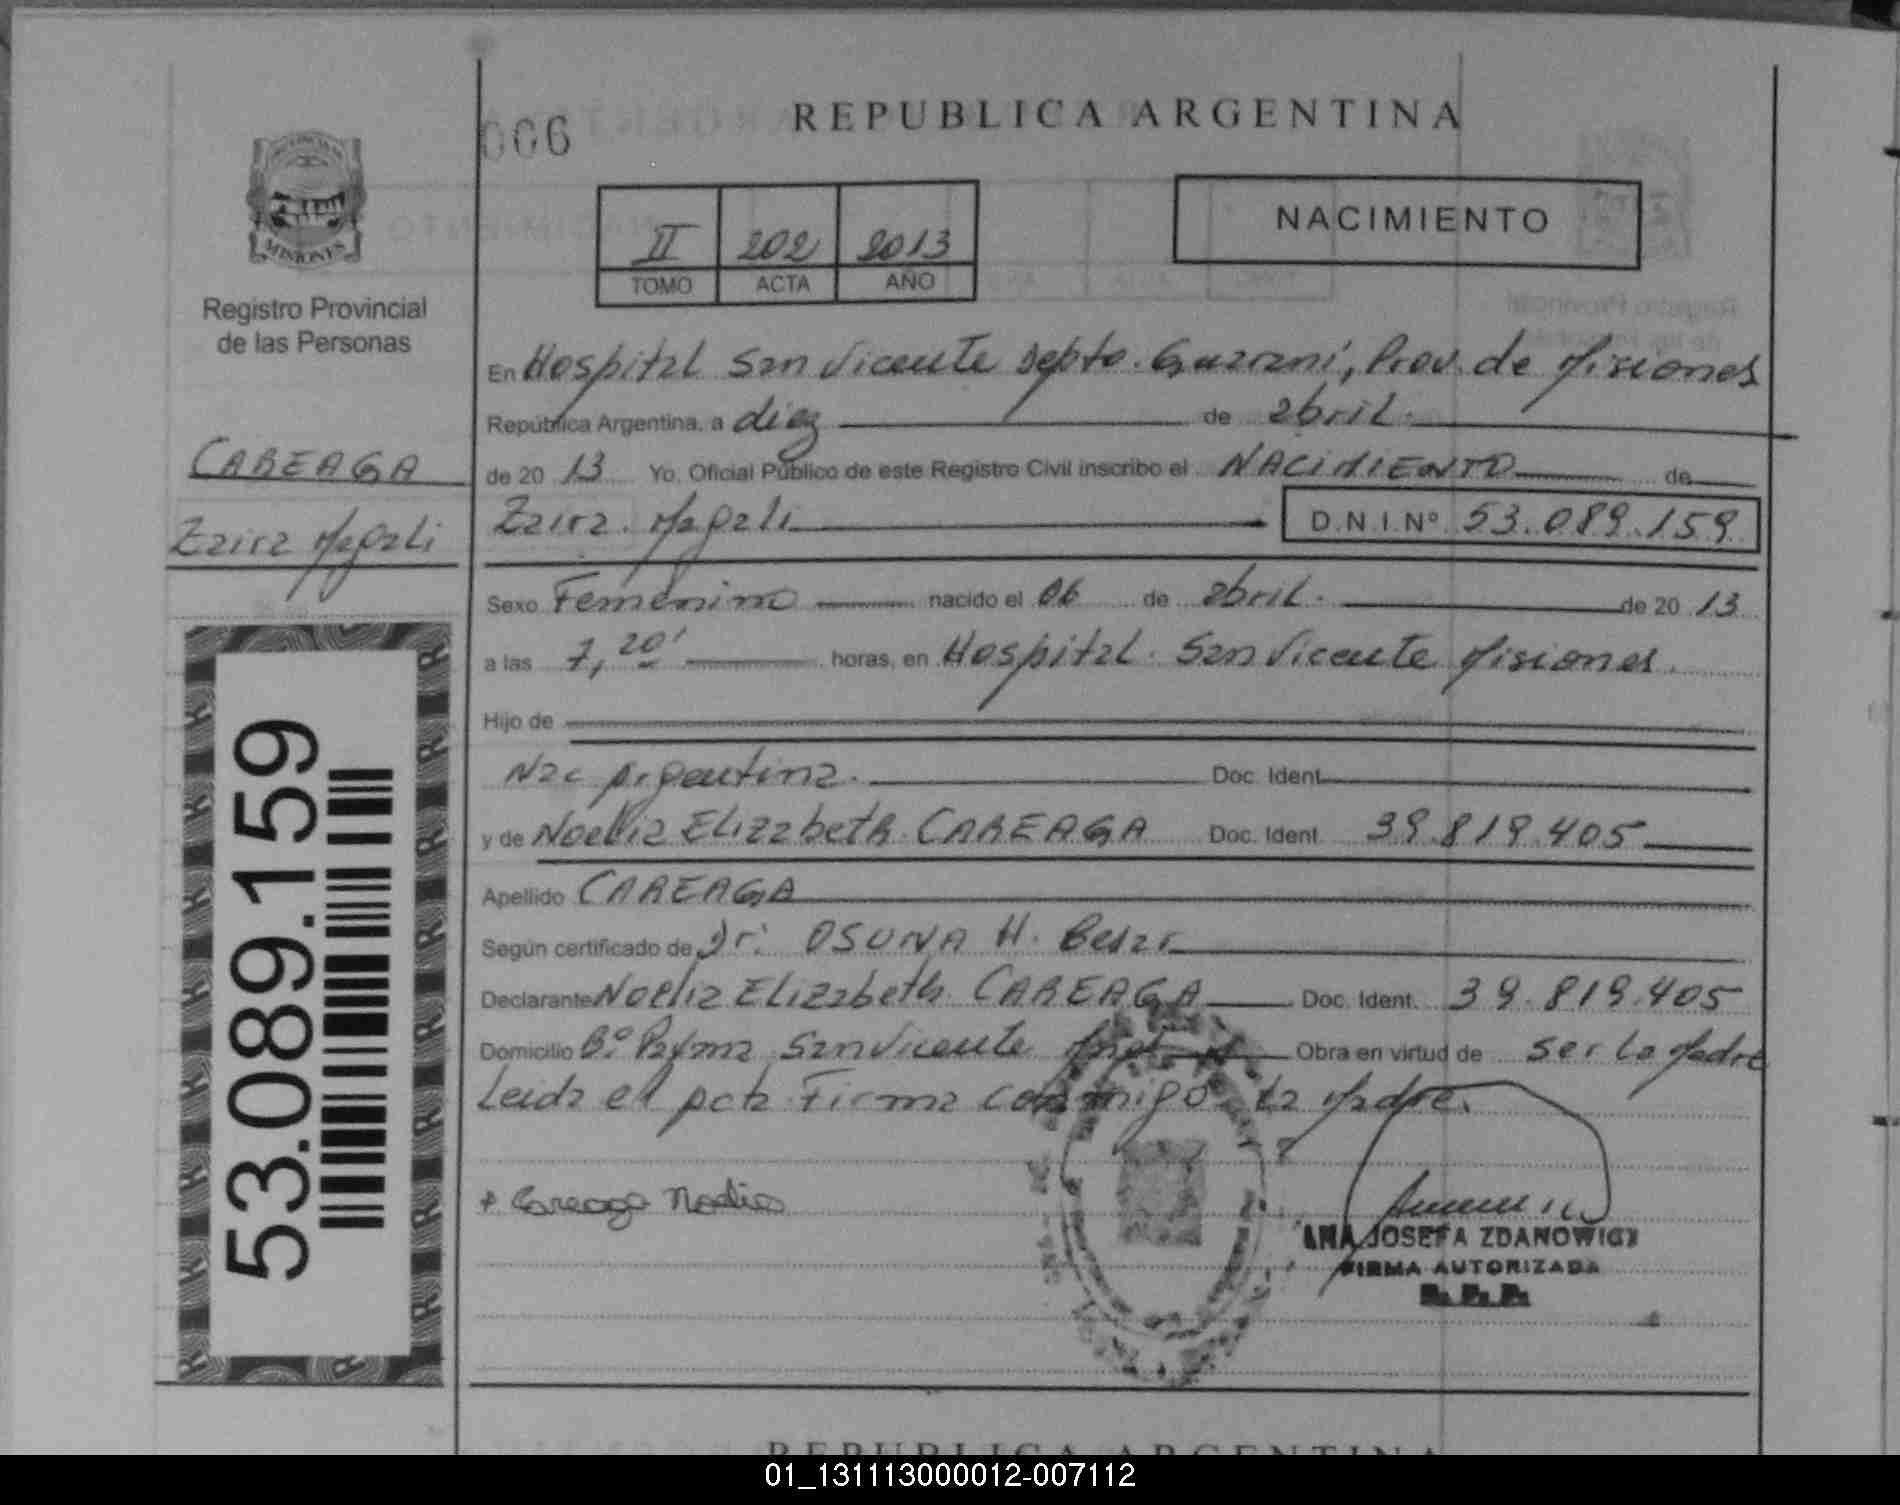 006
REPUBLICA ARGENTINA
II 202 2013
TOMO ACTA AÑO
NACIMIENTO
MISIONES
Registro Provincial
de las Personas
CAREAGA
Zaira Magali
53.089.159
En Hospital San Vicente Depto. Guarani, Prov. de Misiones
República Argentina, a diez de abril.
de 20 13 Yo, Oficial Público de este Registro Civil inscribo el NACIMIENTO de
Zaira Magali D.N.I.Nº 53.089.159
Sexo Femenino nacido el 06 de abril. de 20 13
a las 7,20' horas, en Hospital San Vicente Misiones.
Hijo de
Nac Argentina. Doc. Ident.
y de Noelia Elizabeth CAREAGA Doc. Ident. 39.819.405
Apellido CAREAGA
Según certificado de Dr. OSUNA H. Cesar
Declarante Noelia Elizabeth CAREAGA Doc. Ident. 39.819.405
Domicilio Bº San Vicente Obra en virtud de ser la Madre
Leida el Acta Firma conmigo la Madre.
Careaga Noelia
ANA JOSEFA ZDANOWICZ
FIRMA AUTORIZADA
R. P. P.
REPUBLICA ARGENTINA
01_131113000012-007112